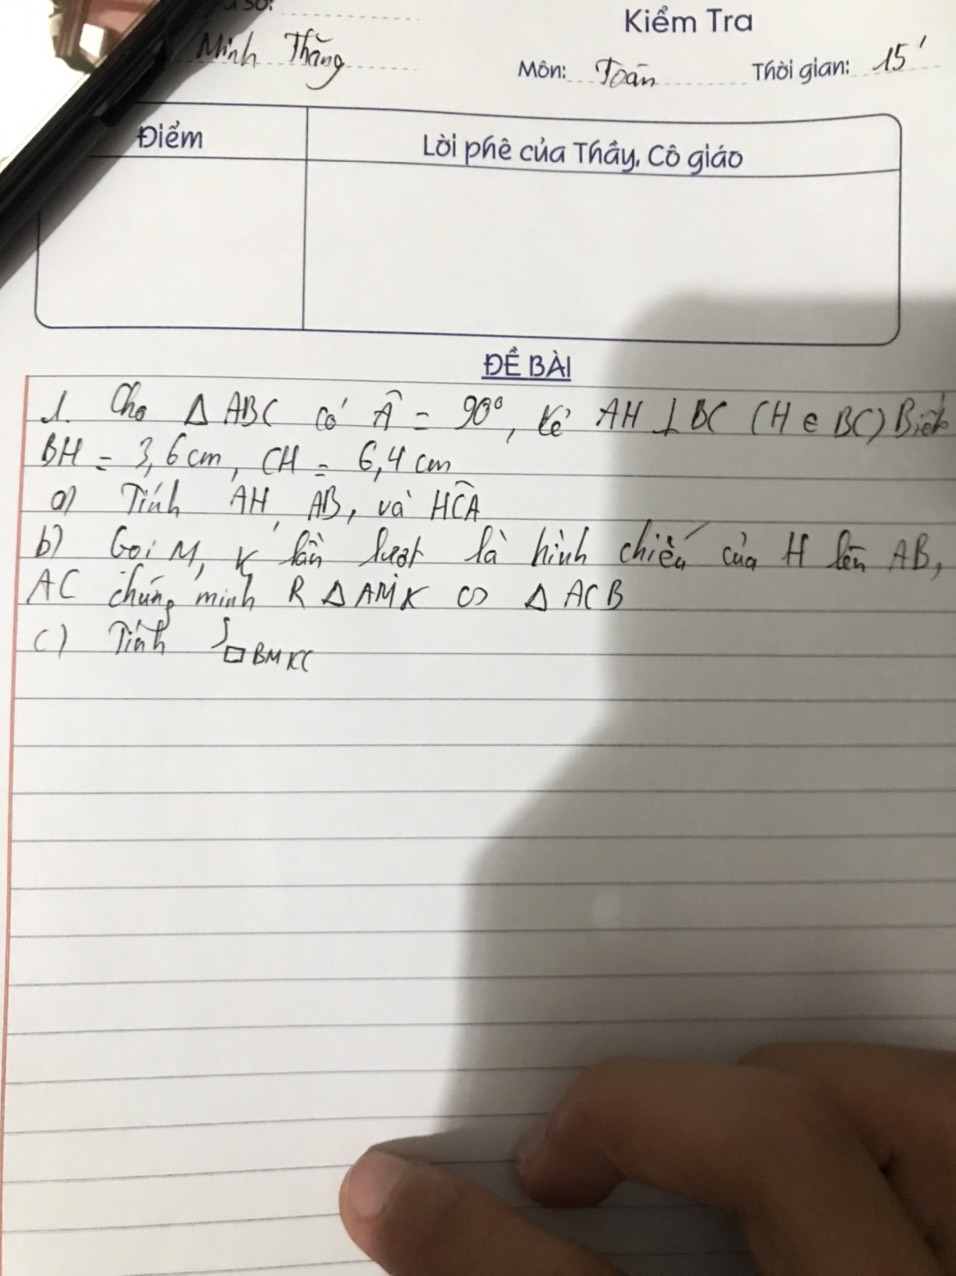 số:
Kiểm Tra
Minh Thăng
Môn: Toán Thời gian: 15'
Điểm
Lời phê của Thầy, Cô giáo
ĐỀ BÀI
1. Cho Δ ABC có Â = 90°, kẻ AH ⊥ BC (H ∈ BC) Biết
BH = 3,6 cm, CH = 6,4 cm
a) Tính AH, AB, và HĈA
b) Gọi M, K lần lượt là hình chiếu của H lên AB,
AC chứng minh R Δ AMK ∽ Δ ACB
c) Tính S□BMKC